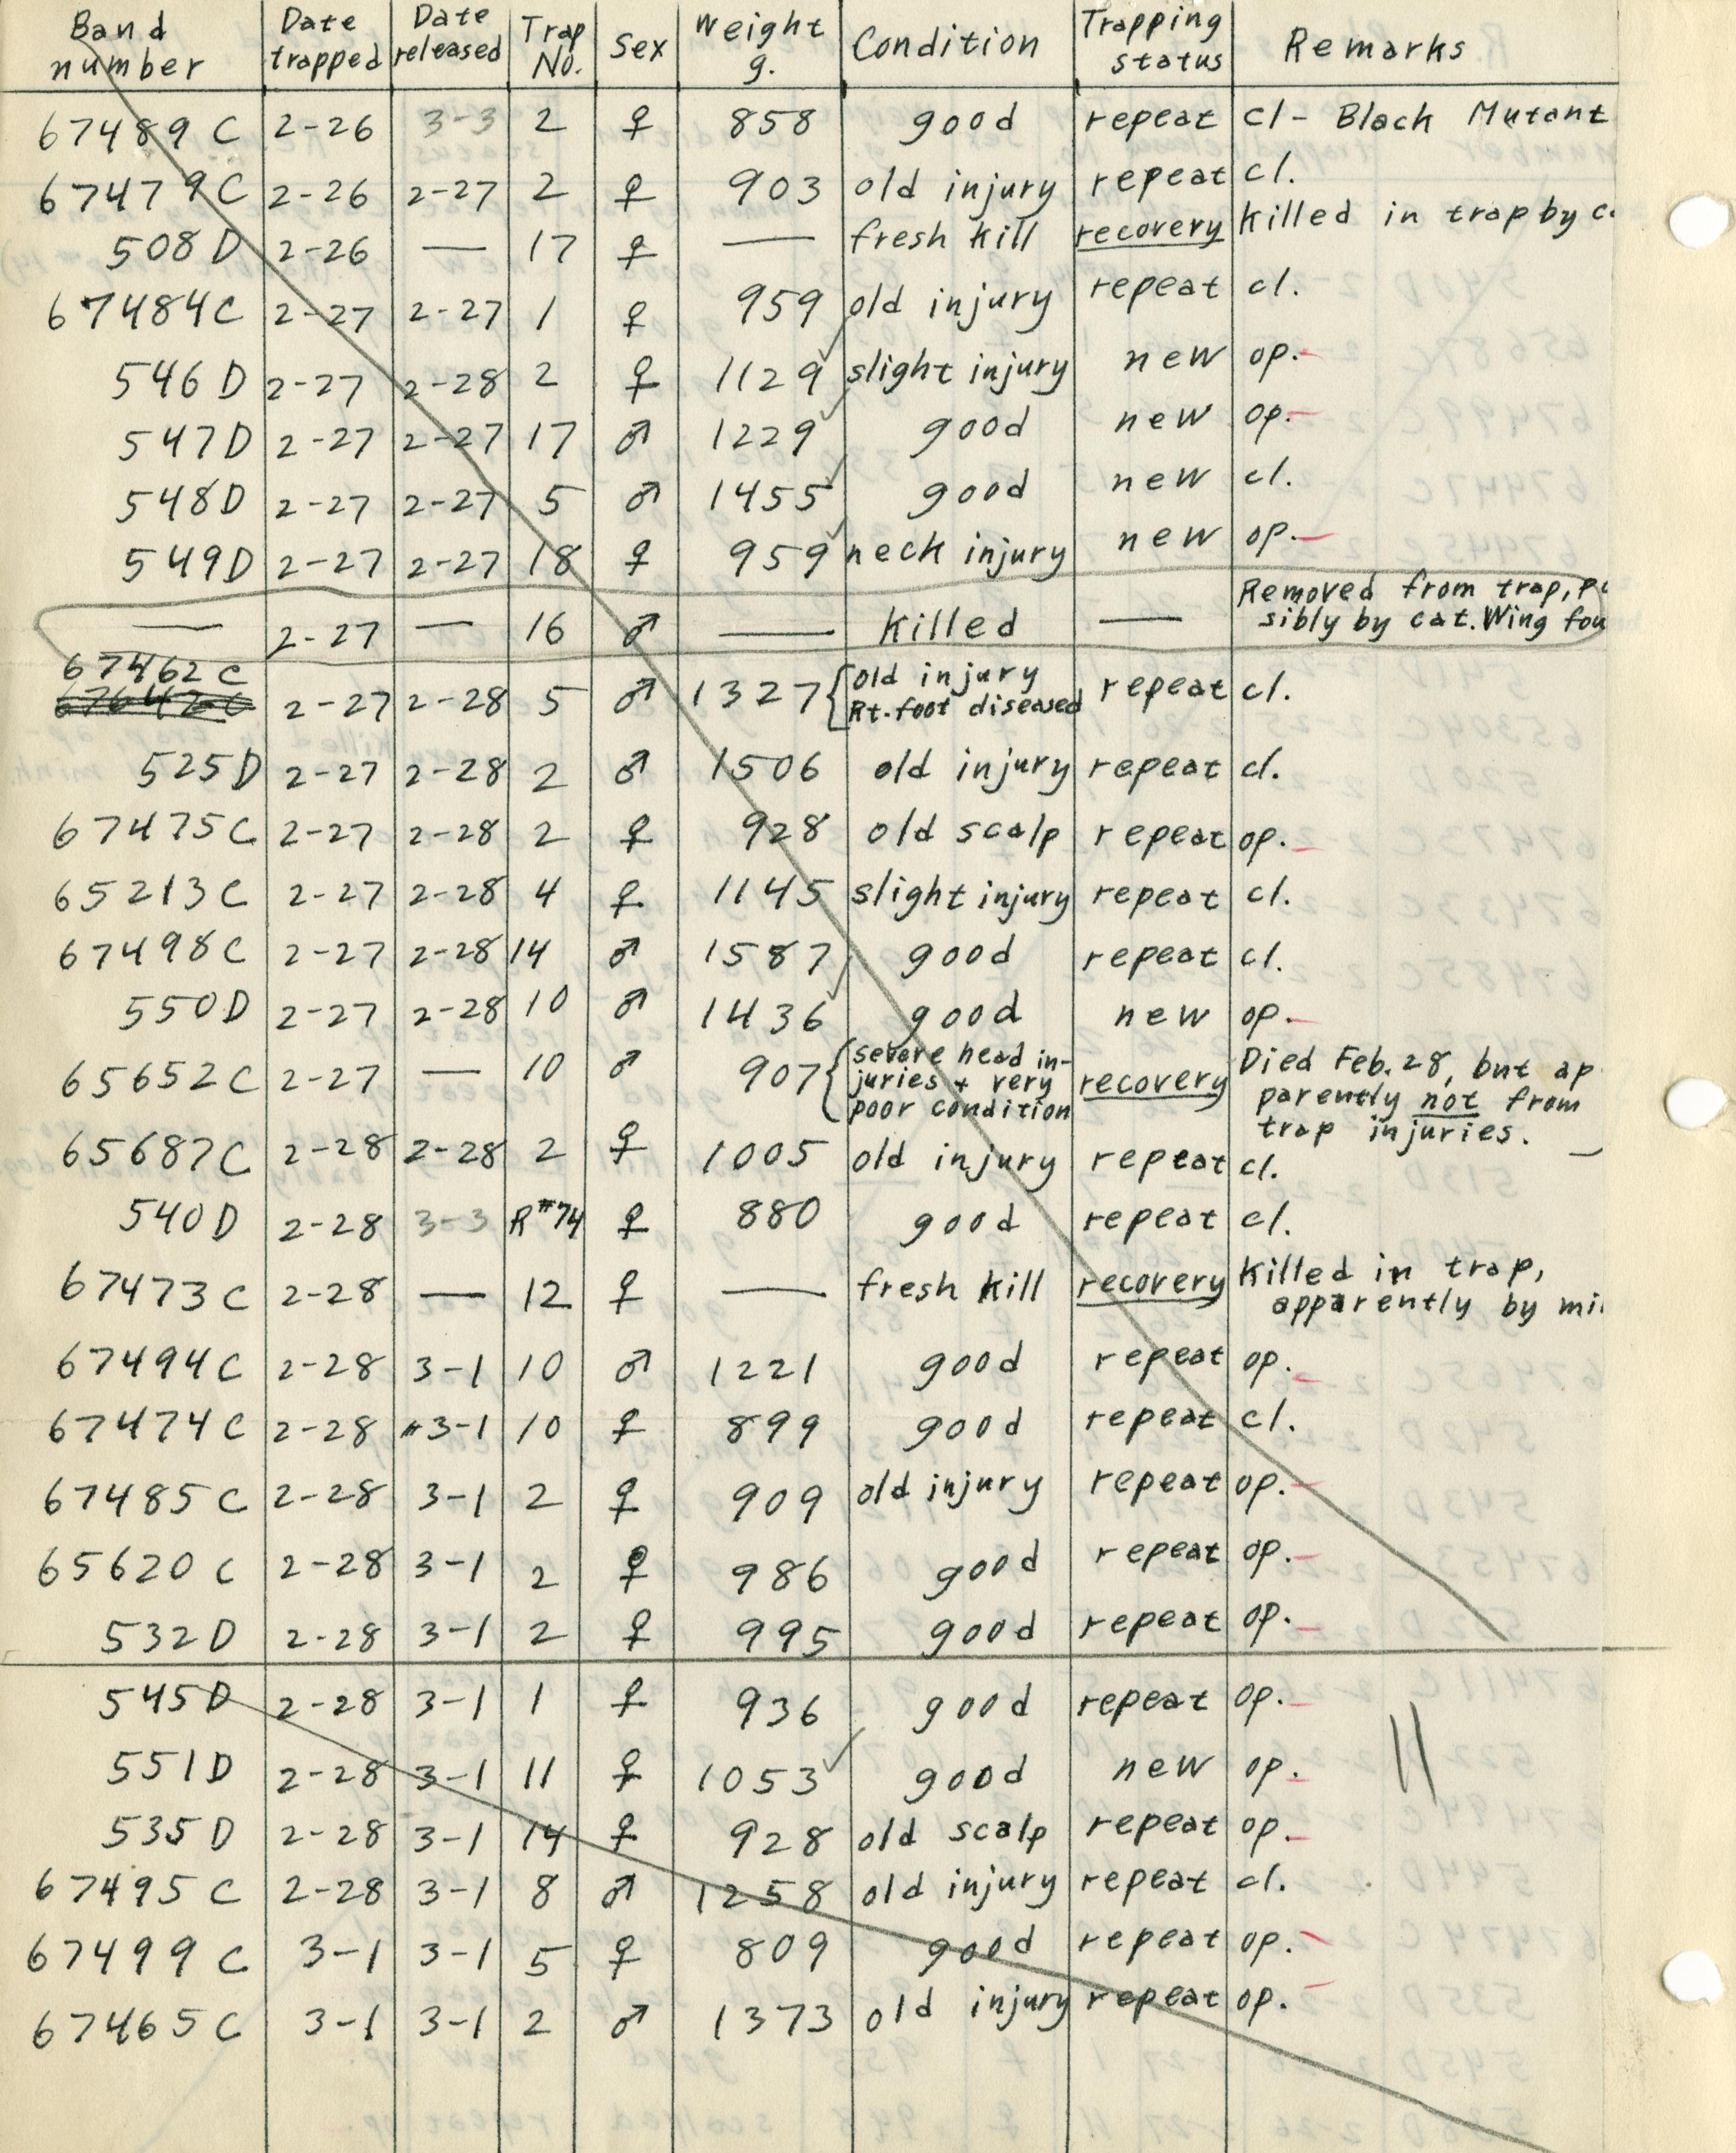 Band number Date trapped Date released Trap No. Sex Weight g. Condition Trapping status Remarks
67489 C 2-26 3-3 2 ♀ 858 good repeat cl- Black Mutant
67479 C 2-26 2-27 2 ♀ 903 old injury repeat cl.
508 D 2-26 — 17 ♀ — fresh kill recovery Killed in trap by c.
67484 C 2-27 2-27 1 ♀ 959 old injury repeat cl.
546 D 2-27 2-28 2 ♀ 1129 ✓ slight injury new op.
547 D 2-27 2-27 17 ♂ 1229 ✓ good new op.
548 D 2-27 2-27 5 ♂ 1455 ✓ good new cl.
549 D 2-27 2-27 18 ♀ 959 ✓ neck injury new op.
— 2-27 — 16 ♂ — Killed — Removed from trap, p
sibly by cat. Wing fou
67462 C 2-27 2-28 5 ♂ 1327 { old injury repeat cl.
67642 C Rt. foot diseased
525 D 2-27 2-28 2 ♂ 1506 old injury repeat cl.
67475 C 2-27 2-28 2 ♀ 928 old scalp repeat op.
65213 C 2-27 2-28 4 ♀ 1145 slight injury repeat cl.
67498 C 2-27 2-28 14 ♂ 1587 good repeat cl.
550 D 2-27 2-28 10 ♂ 1436 ✓ good new op.
65652 C 2-27 — 10 ♂ 907 { severe head in- recovery Died Feb. 28, but ap
juries + very parently not from
poor condition trap injuries.
65687 C 2-28 2-28 2 ♀ 1005 old injury repeat cl.
540 D 2-28 3-3 R#74 ♀ 880 good repeat cl.
67473 C 2-28 — 12 ♀ — fresh kill recovery Killed in trap,
apparently by mi
67494 C 2-28 3-1 10 ♂ 1221 good repeat op.
67474 C 2-28 3-1 10 ♀ 899 good repeat cl.
67485 C 2-28 3-1 2 ♀ 909 old injury repeat op.
65620 C 2-28 3-1 2 ♀ 986 good repeat op.
532 D 2-28 3-1 2 ♀ 995 good repeat op.
545 D 2-28 3-1 1 ♀ 936 good repeat op.
551 D 2-28 3-1 11 ♀ 1053 ✓ good new op. 11
535 D 2-28 3-1 14 ♀ 928 old scalp repeat op.
67495 C 2-28 3-1 8 ♂ 1258 old injury repeat cl.
67499 C 3-1 3-1 5 ♀ 809 good repeat op.
67465 C 3-1 3-1 2 ♂ 1373 old injury repeat op.